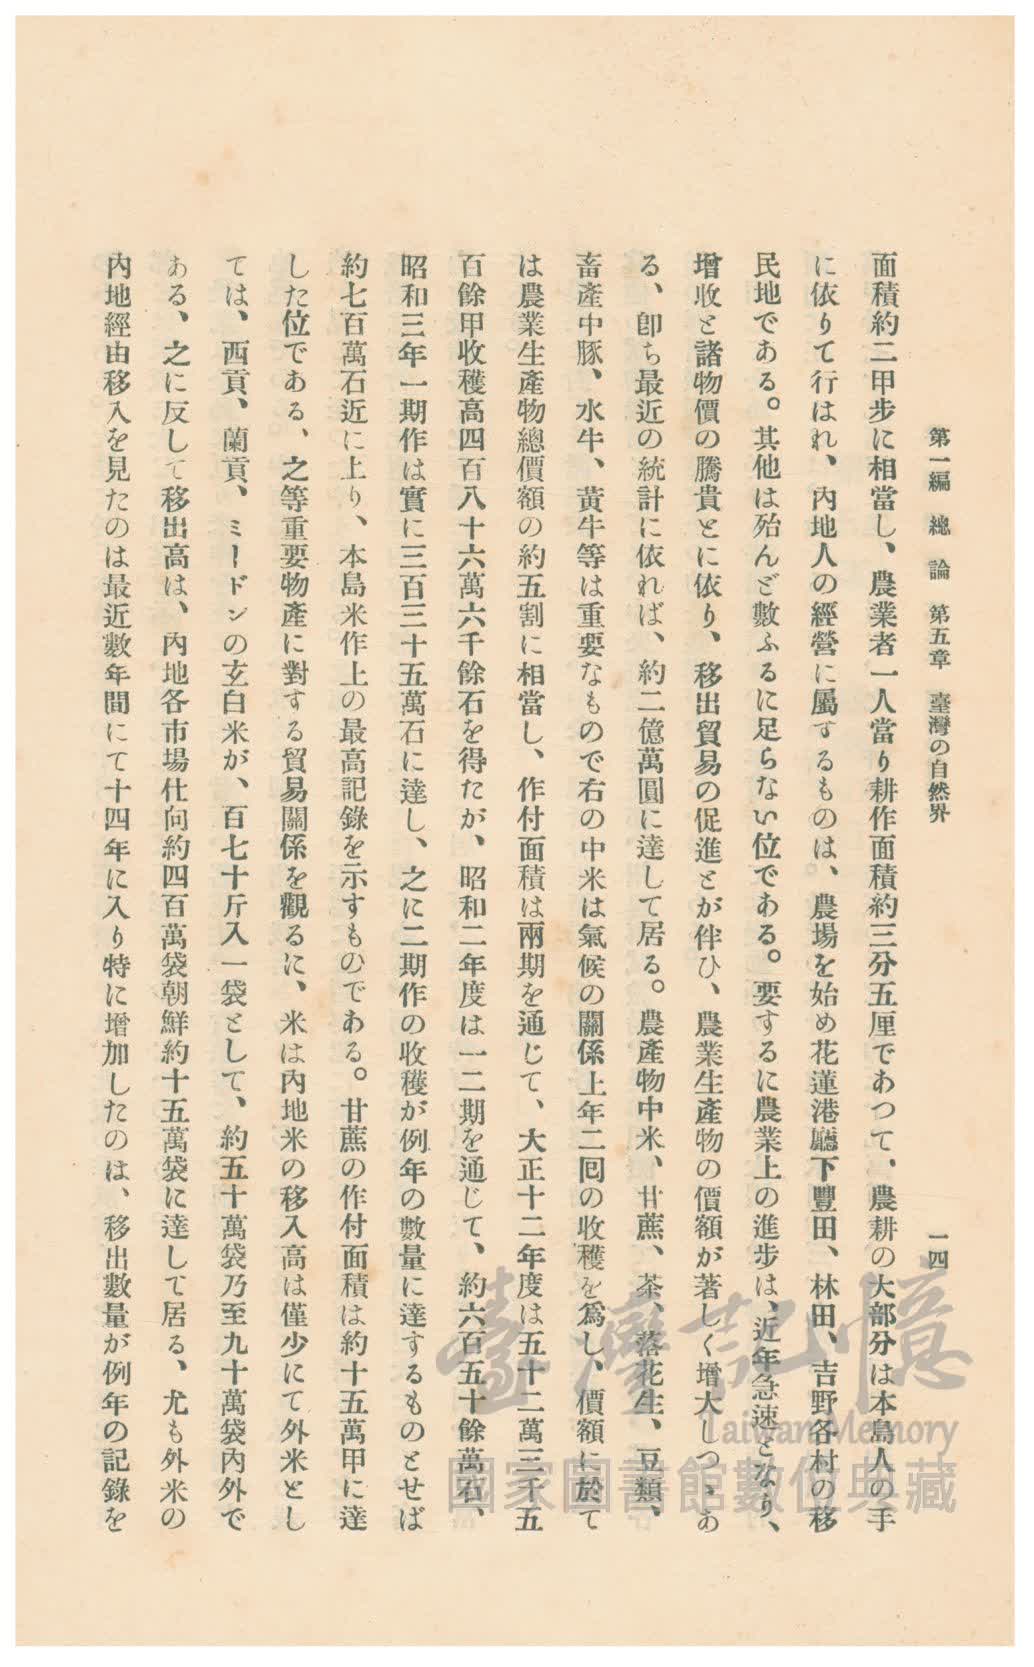 第一編　總　論　第五章　臺灣の自然界　一四
面積約二甲步に相當し、農業者一人當り耕作面積約三分五厘であつて、農耕の大部分は本島人の手
に依りて行はれ、內地人の經營に屬するものは、農場を始め花蓮港廳下豐田、林田、吉野各村の移
民地である。其他は殆んど數ふるに足らない位である。要するに農業上の進步は、近年急速となり、
增收と諸物價の騰貴とに依り、移出貿易の促進とが伴ひ、農業生產物の價額が著しく增大しつゝあ
る、卽ち最近の統計に依れば、約二億萬圓に達して居る。農產物中米、甘蔗、茶、落花生、豆類、
畜產中豚、水牛、黃牛等は重要なもので右の中米は氣候の關係上年二囘の收穫を爲し、價額に於て
は農業生產物總價額の約五割に相當し、作付面積は兩期を通じて、大正十二年度は五十二萬三千五
百餘甲收穫高四百八十六萬六千餘石を得たが、昭和二年度は一二期を通じて、約六百五十餘萬石、
昭和三年一期作は實に三百三十五萬石に達し、之に二期作の收穫が例年の數量に達するものとせば
約七百萬石近に上り、本島米作上の最高記錄を示すものである。甘蔗の作付面積は約十五萬甲に達
した位である、之等重要物產に對する貿易關係を觀るに、米は內地米の移入高は僅少にて外米とし
ては、西貢、蘭貢、ミードンの玄白米が、百七十斤入一袋として、約五十萬袋乃至九十萬袋內外で
ある、之に反して移出高は、內地各市場仕向約四百萬袋朝鮮約十五萬袋に達して居る、尤も外米の
內地經由移入を見たのは最近數年間にて十四年に入り特に增加したのは、移出數量が例年の記錄を
臺灣記憶
Taiwan Memory
國家圖書館數位典藏